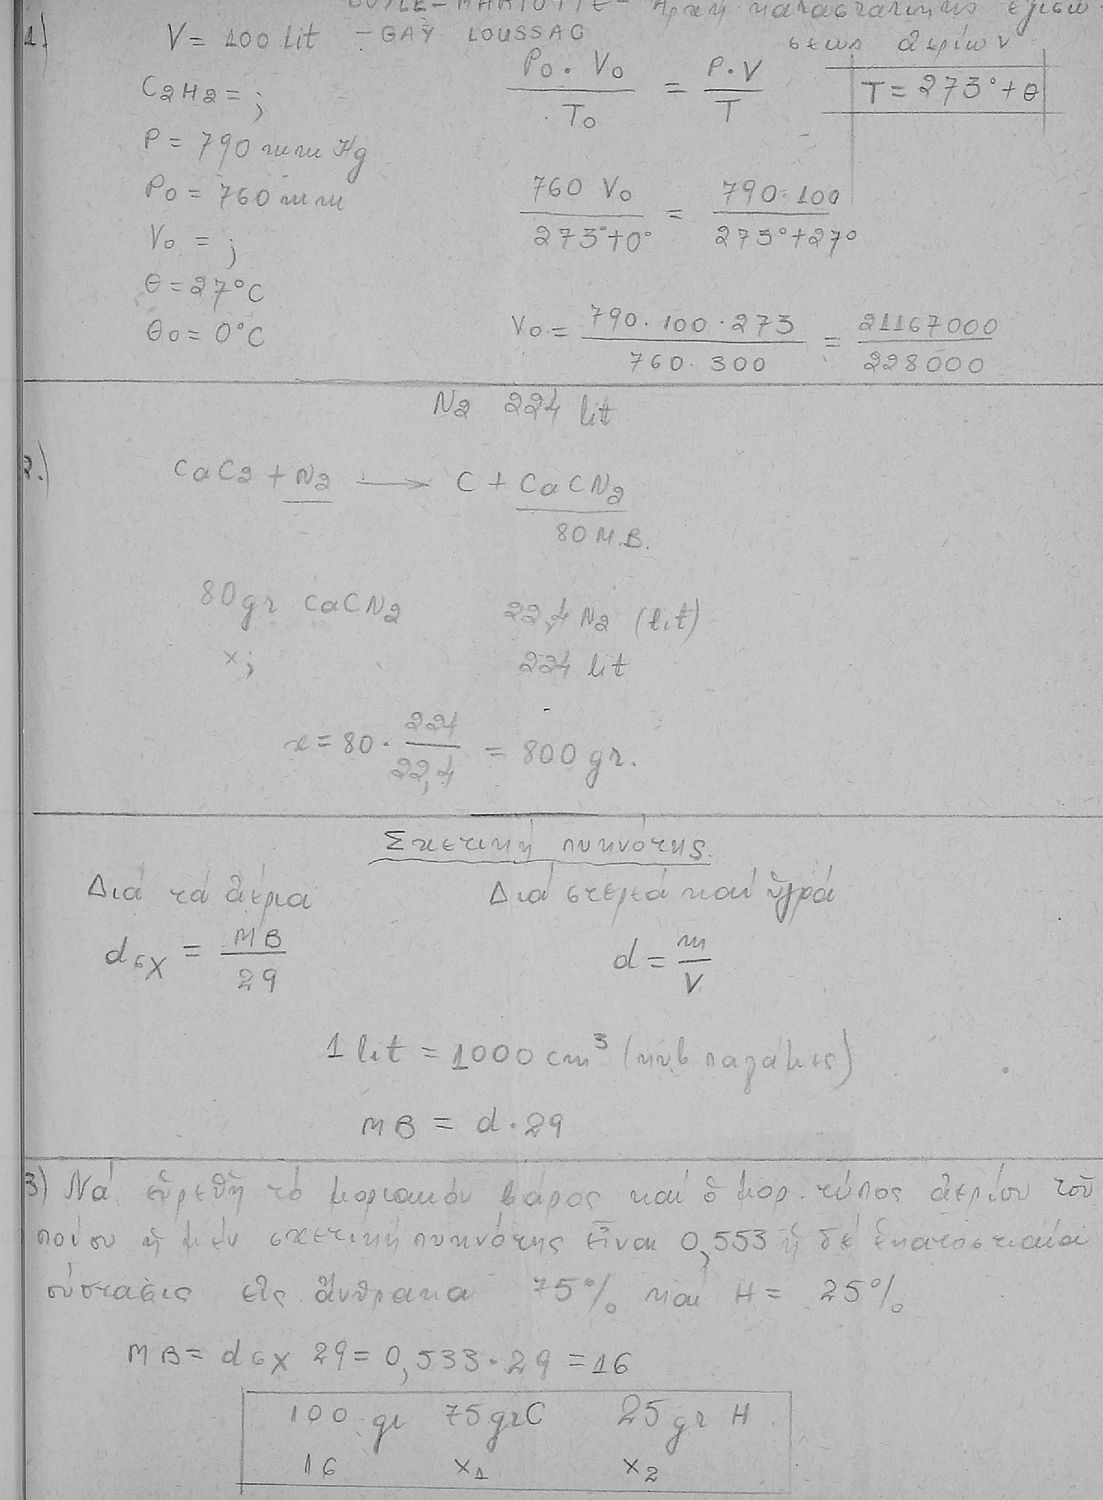 BOYLE-MARIOTTE- Ἀρχή καταστατικῆς ἐξισώ-
1) V = 100 lit - GAY LOUSSAC σεως ἀερίων
C2H2 = ; P0 . V0 / T0 = P.V / T T = 273° + θ
P = 790 mm Hg
P0 = 760 mm 760 V0 / 273°+0° = 790.100 / 273°+27°
V0 = ;
θ = 27°C
θ0 = 0°C V0 = 790.100.273 / 760.300 = 21167000 / 228000
N2 224 lit
2.) CaC2 + N2 → C + CaCN2
80 M.B.
80gr CaCN2 22,4 N2 (lit)
x; 224 lit
x = 80 . 224 / 22,4 = 800 gr.
Σχετική πυκνότης.
Διά τά ἀέρια Διά στερεά καί ὑγρά
dσχ = MB / 29 d = m / V
1 lit = 1000 cm³ (κυβ παλάμες)
MB = d . 29
3) Νά εὑρεθῆ τό μοριακόν βάρος καί ὁ μορ. τύπος ἀερίου τοῦ
ποίου ἡ μέν σχετική πυκνότης εἶναι 0,553 ἡ δέ ἑκατοστιαία
σύστασις εἰς ἄνθρακα 75% καί H = 25%
MB = dσχ 29 = 0,533 . 29 = 16
100 gr 75grC 25gr H
16 x1 x2